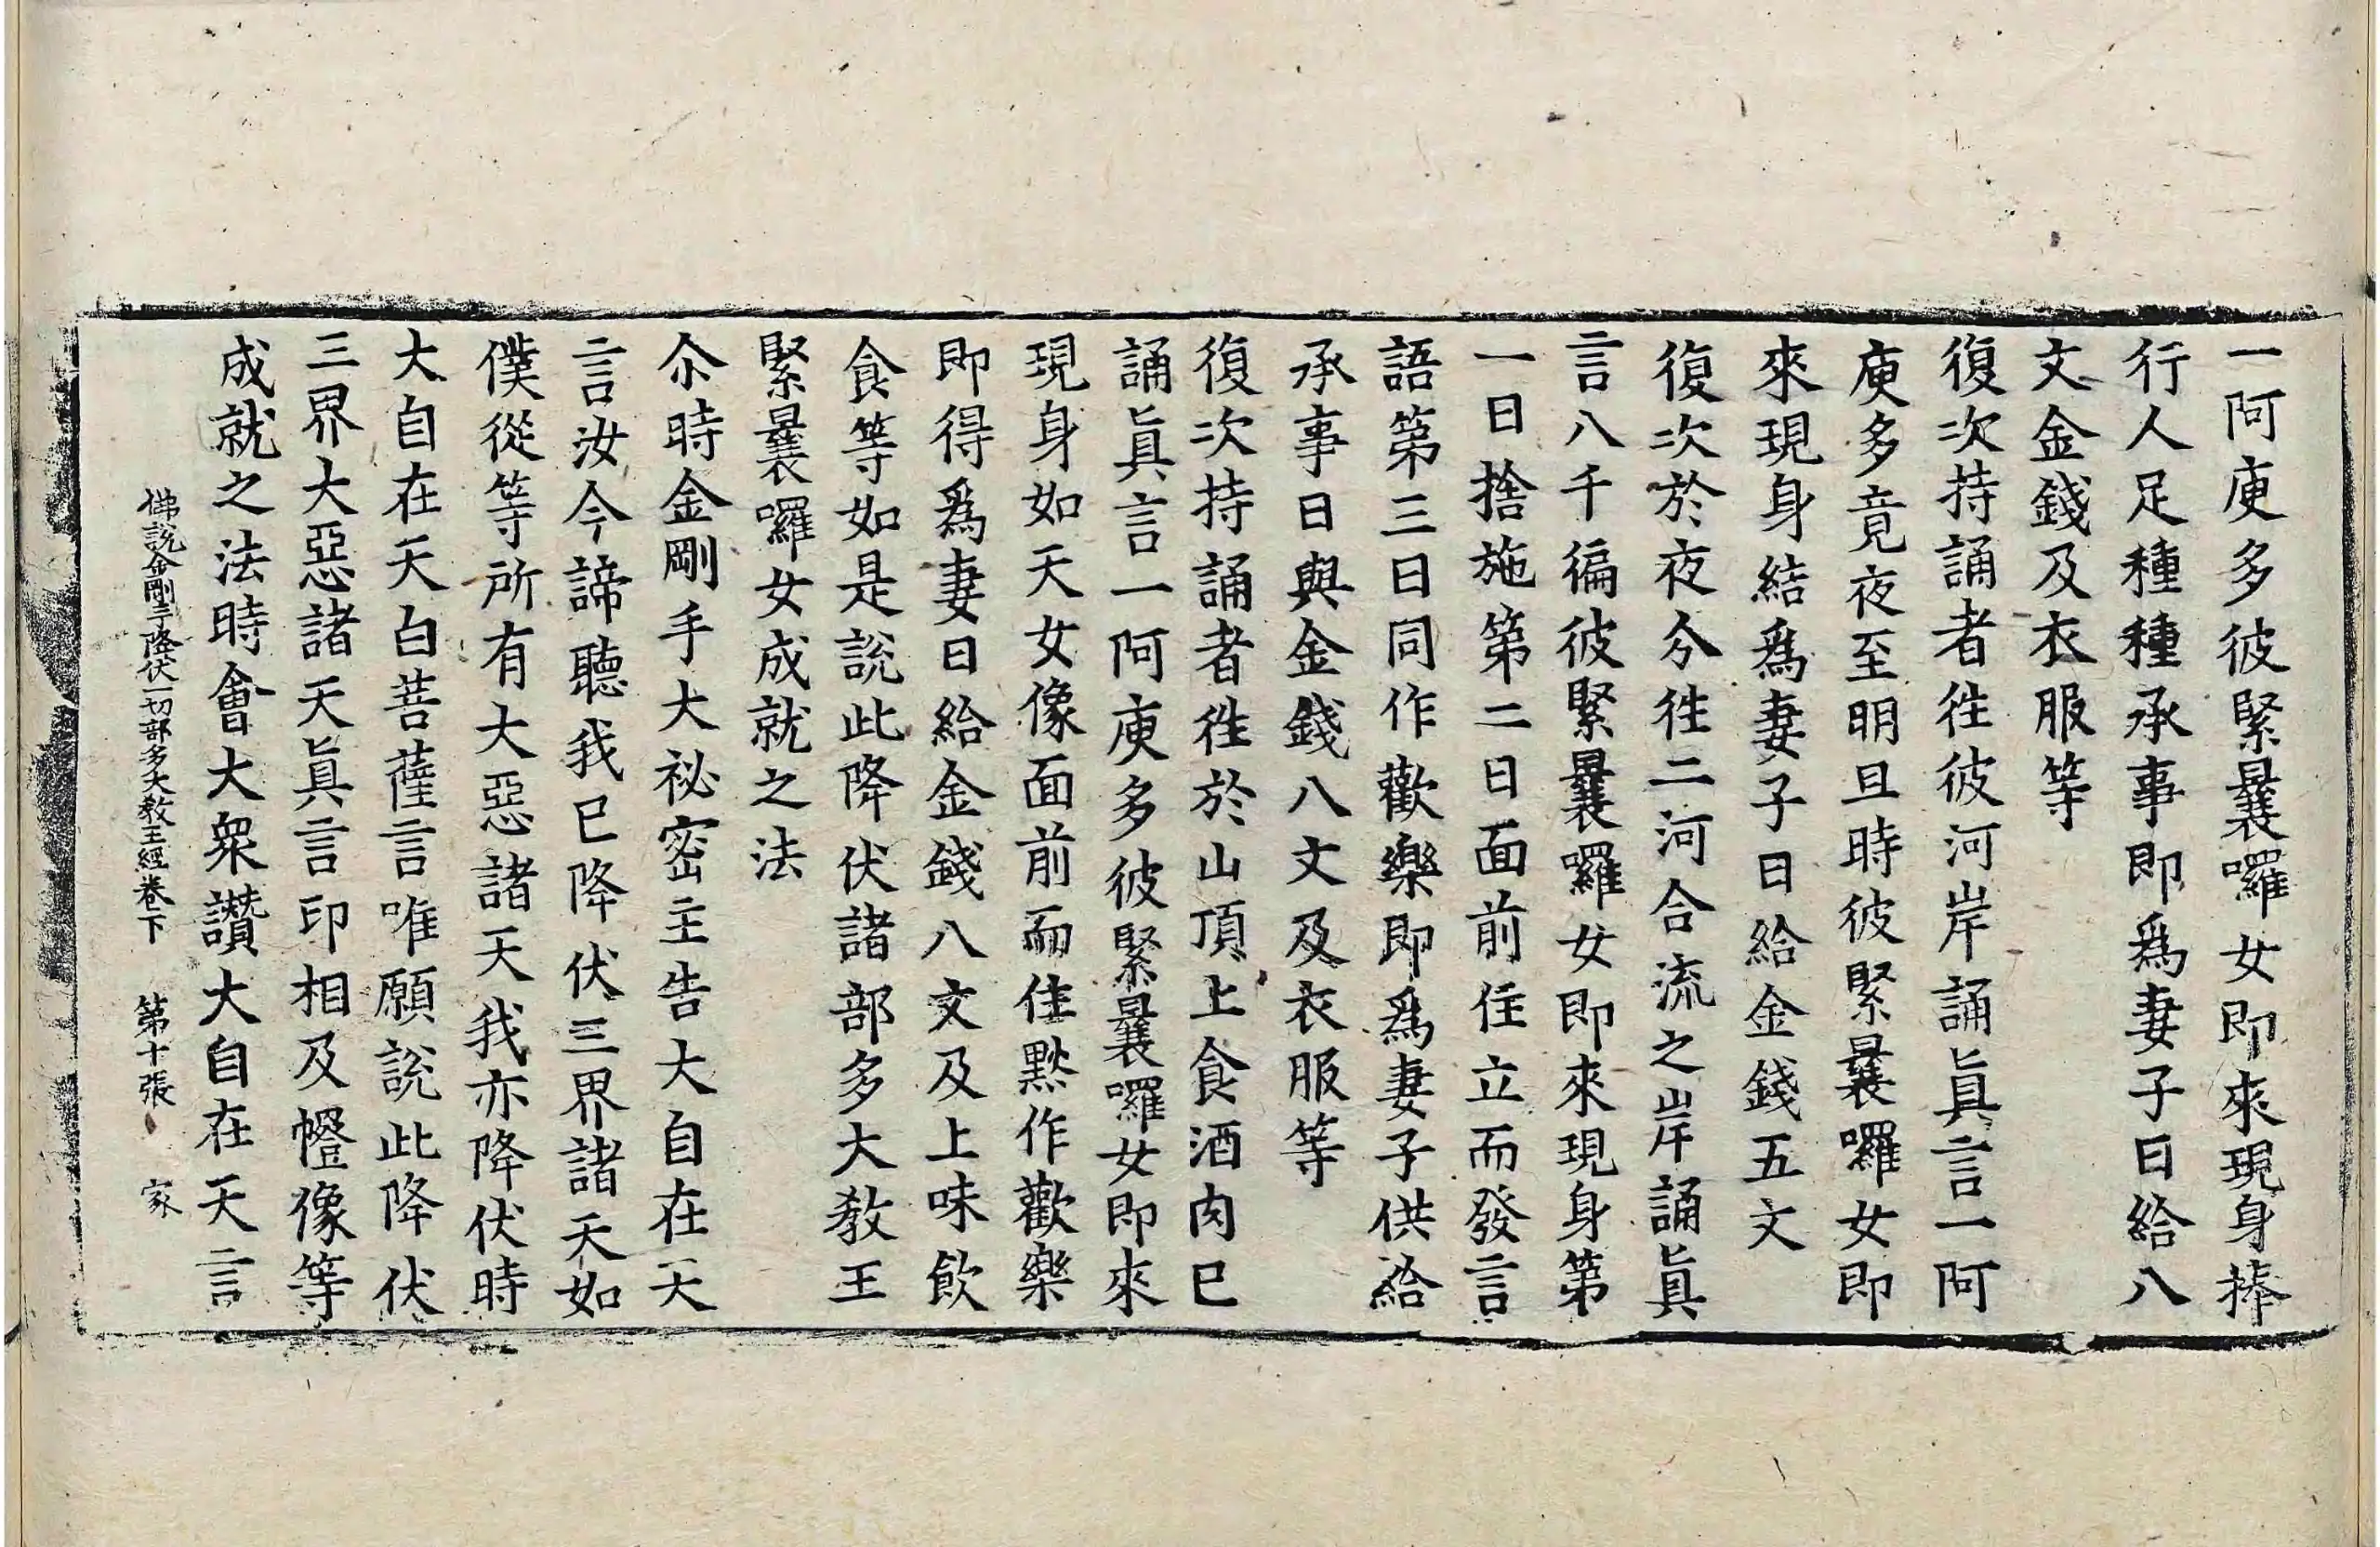 一阿庾多彼緊曩囉女即來現身捧
行人足種種承事即爲妻子日給八
文金錢及衣服等
復次持誦者往彼河岸誦眞言一阿
庾多竟夜至明旦時彼緊曩囉女即
來現身結爲妻子日給金錢五文
復次於夜分往二河合流之岸誦眞
言八千徧彼緊曩囉女即來現身第
一日捨施第二日面前住立而發言
語第三日同作歡樂即爲妻子供給
承事日與金錢八文及衣服等
復次持誦者往於山頂上食酒肉已
誦眞言一阿庾多彼緊曩囉女即來
現身如天女像面前而住黙作歡樂
即得爲妻日給金錢八文及上味飲
食等如是說此降伏諸部多大敎王
緊曩囉女成就之法
尒時金剛手大祕密主告大自在天
言汝今諦聽我已降伏三界諸天如
僕從等所有大惡諸天我亦降伏時
大自在天白菩薩言唯願說此降伏
三界大惡諸天眞言印相及㡧像等
成就之法時會大衆讚大自在天言
佛說金剛手降伏一切部多大敎王經卷下 第十張 家